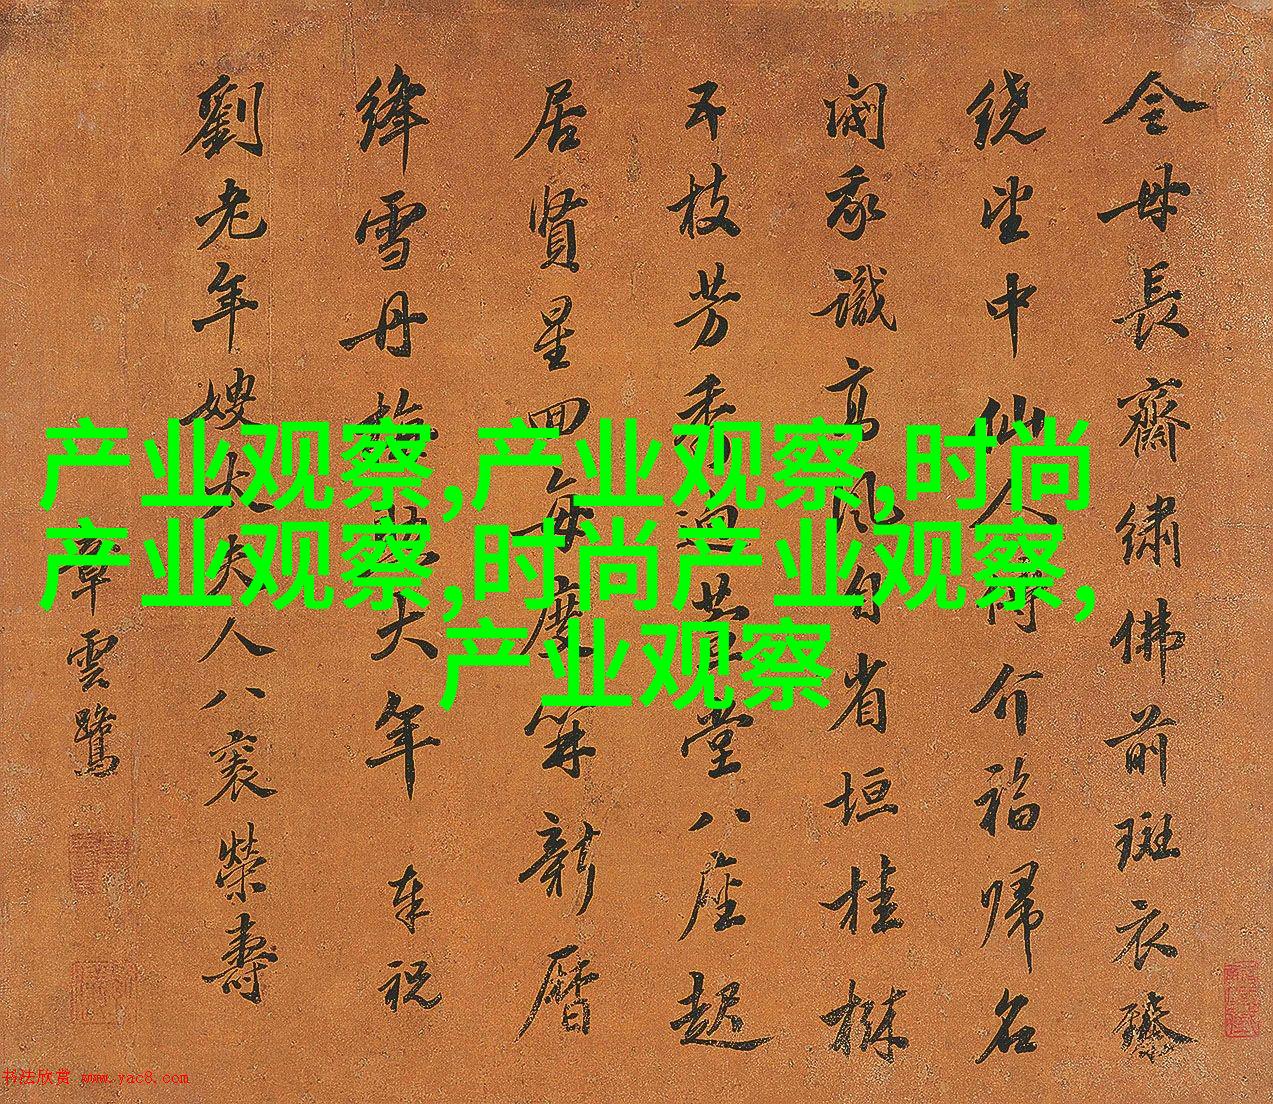 产业观察,产业观察,时尚
产业观察,时尚产业观察,
产业观察
金母長齋繡佛前斑衣
繞坐中仙人介福歸名
閫識高風自省垣桂林
不枝芳香迴萱堂八座起
居賢星四毎度筭新曆
絳雪丹梅大年奉祝
劉老年嫂太夫人八袠榮壽
章雲鷺
书法欣赏 www.yac8.com